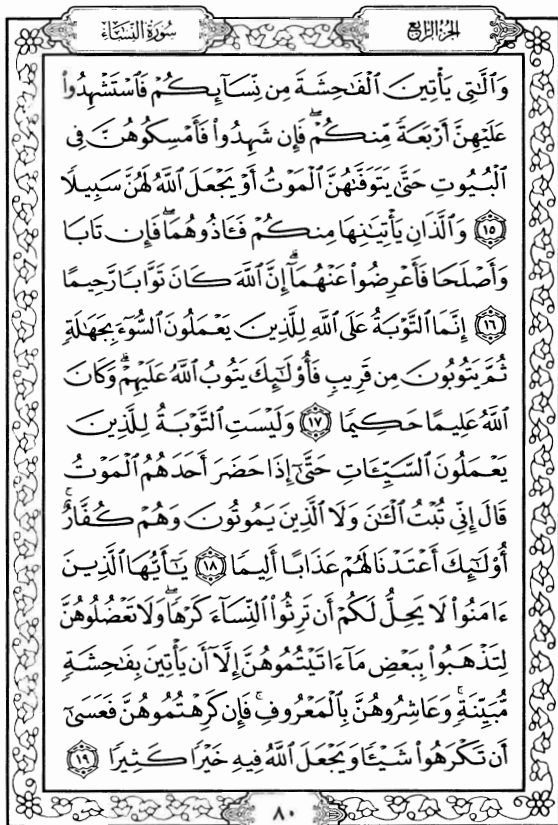 الجزء الرابع
سورة النساء
وَٱلَّٰتِى يَأْتِينَ ٱلْفَٰحِشَةَ مِن نِّسَآئِكُمْ فَٱسْتَشْهِدُوا۟
عَلَيْهِنَّ أَرْبَعَةً مِّنكُمْ ۖ فَإِن شَهِدُوا۟ فَأَمْسِكُوهُنَّ فِى
ٱلْبُيُوتِ حَتَّىٰ يَتَوَفَّىٰهُنَّ ٱلْمَوْتُ أَوْ يَجْعَلَ ٱللَّهُ لَهُنَّ سَبِيلًا
١٥ وَٱلَّذَانِ يَأْتِيَٰنِهَا مِنكُمْ فَـَٔاذُوهُمَا ۖ فَإِن تَابَا
وَأَصْلَحَا فَأَعْرِضُوا۟ عَنْهُمَآ ۗ إِنَّ ٱللَّهَ كَانَ تَوَّابًا رَّحِيمًا
١٦ إِنَّمَا ٱلتَّوْبَةُ عَلَى ٱللَّهِ لِلَّذِينَ يَعْمَلُونَ ٱلسُّوٓءَ بِجَهَٰلَةٍ
ثُمَّ يَتُوبُونَ مِن قَرِيبٍ فَأُو۟لَٰٓئِكَ يَتُوبُ ٱللَّهُ عَلَيْهِمْ ۗ وَكَانَ
ٱللَّهُ عَلِيمًا حَكِيمًا ١٧ وَلَيْسَتِ ٱلتَّوْبَةُ لِلَّذِينَ
يَعْمَلُونَ ٱلسَّيِّـَٔاتِ حَتَّىٰٓ إِذَا حَضَرَ أَحَدَهُمُ ٱلْمَوْتُ
قَالَ إِنِّى تُبْتُ ٱلْـَٰٔنَ وَلَا ٱلَّذِينَ يَمُوتُونَ وَهُمْ كُفَّارٌ ۚ
أُو۟لَٰٓئِكَ أَعْتَدْنَا لَهُمْ عَذَابًا أَلِيمًا ١٨ يَٰٓأَيُّهَا ٱلَّذِينَ
ءَامَنُوا۟ لَا يَحِلُّ لَكُمْ أَن تَرِثُوا۟ ٱلنِّسَآءَ كَرْهًا ۖ وَلَا تَعْضُلُوهُنَّ
لِتَذْهَبُوا۟ بِبَعْضِ مَآ ءَاتَيْتُمُوهُنَّ إِلَّآ أَن يَأْتِينَ بِفَٰحِشَةٍ
مُّبَيِّنَةٍ ۚ وَعَاشِرُوهُنَّ بِٱلْمَعْرُوفِ ۚ فَإِن كَرِهْتُمُوهُنَّ فَعَسَىٰٓ
أَن تَكْرَهُوا۟ شَيْـًٔا وَيَجْعَلَ ٱللَّهُ فِيهِ خَيْرًا كَثِيرًا ١٩
٨٠